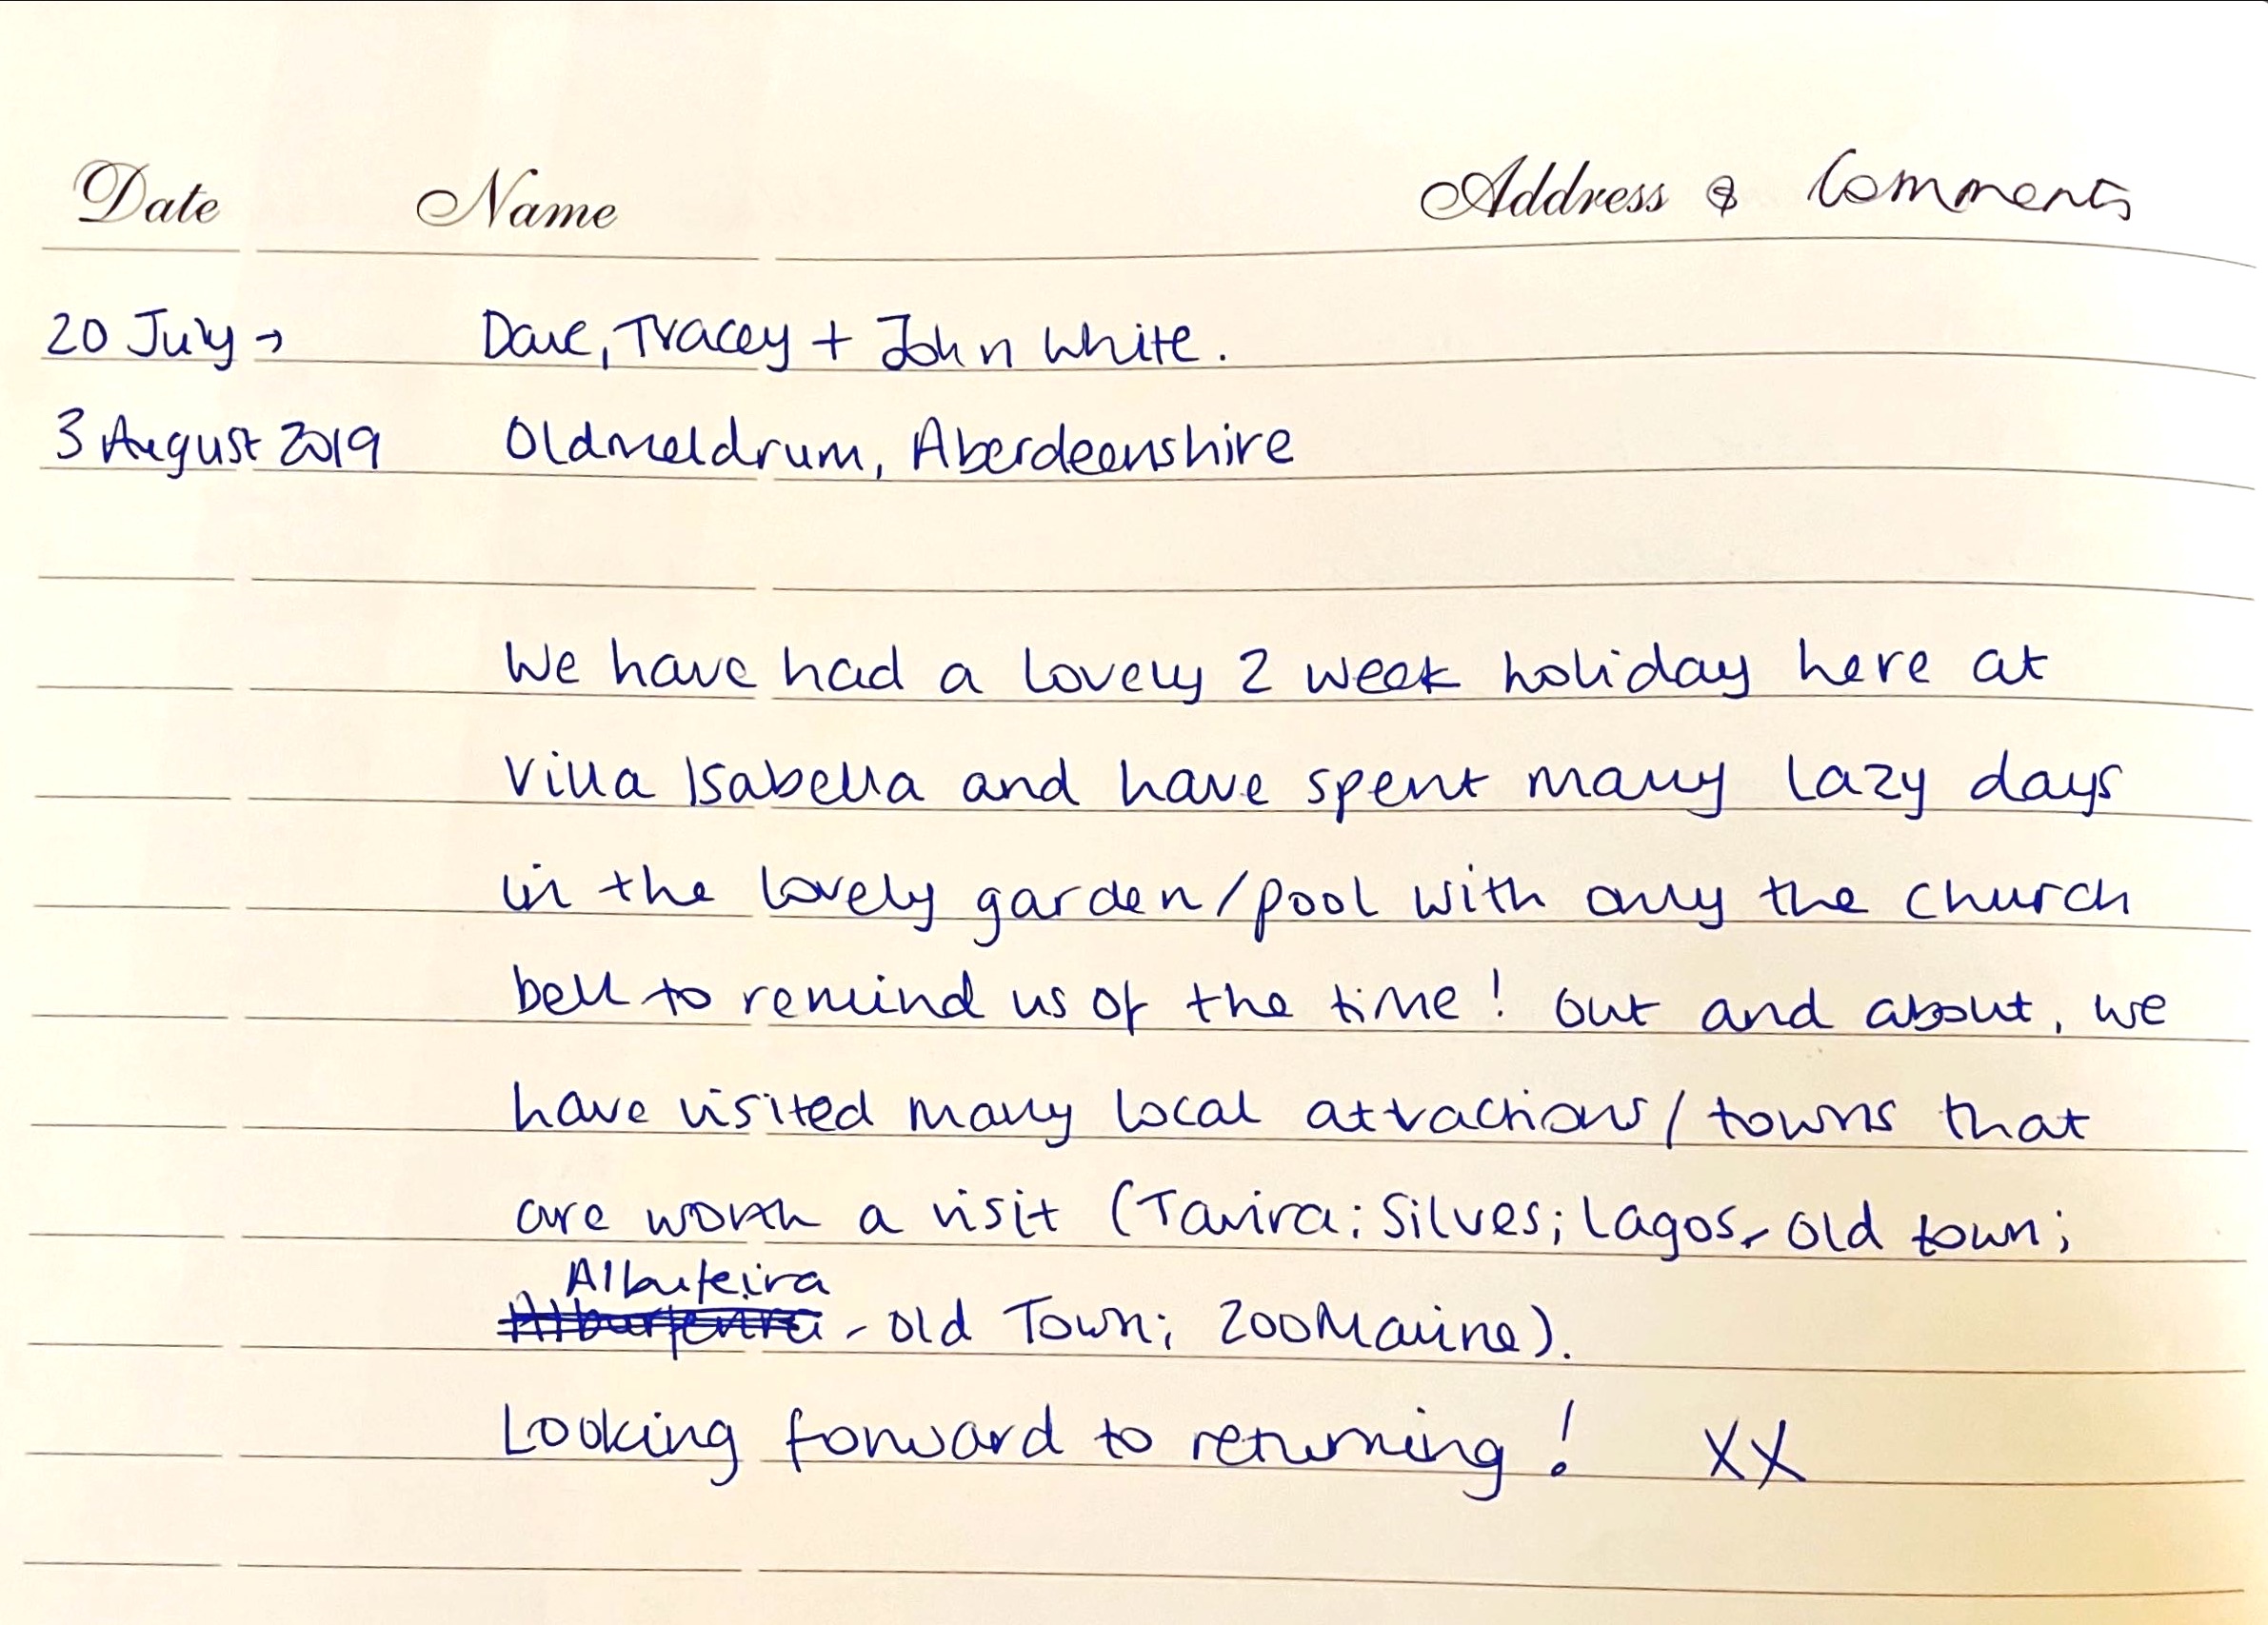 Date Name Address & Comments
20 July → Dave, Tracey + John White.
3 August 2019 Oldmeldrum, Aberdeenshire
We have had a lovely 2 week holiday here at
Villa Isabella and have spent many lazy days
in the lovely garden/pool with only the church
bell to remind us of the time! Out and about, we
have visited many local attractions/towns that
are worth a visit (Tavira; Silves; Lagos - Old town;
Albufeira
- Old Town; ZooMarine).
Looking forward to returning! XX